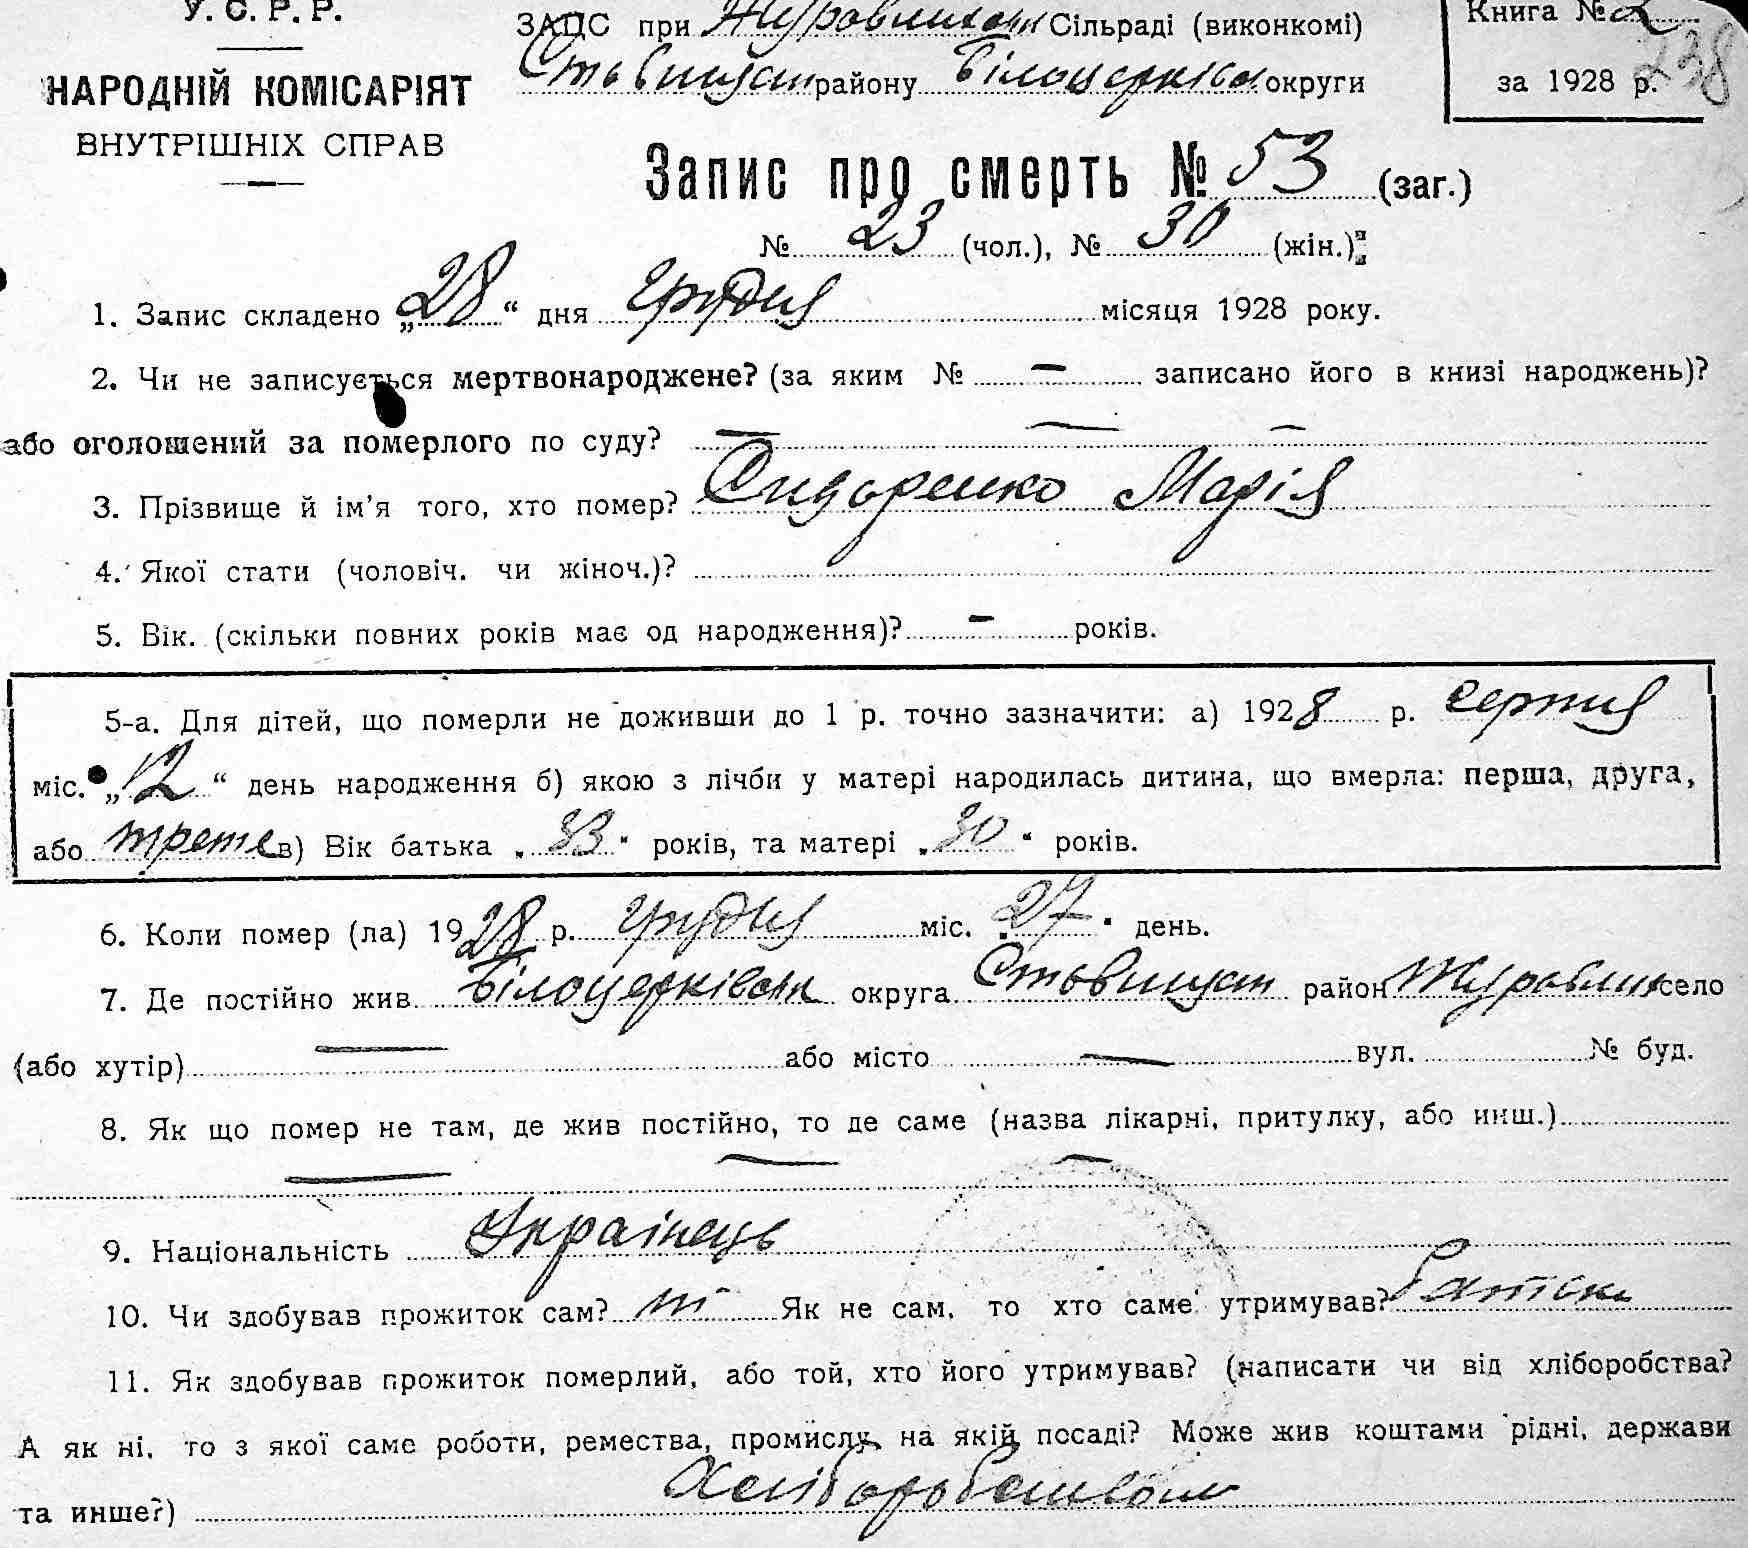 У. С. Р. Р.
НАРОДНІЙ КОМІСАРІЯТ
ВНУТРІШНІХ СПРАВ
ЗАЦС при Журавлиськ Сільраді (виконкомі)
Ставищан району Білоцерківськ округи
Книга № 2
за 1928 р.
238
Запис про смерть № 53 (заг.)
№ 23 (чол.), № 30 (жін.)
1. Запис складено „28“ дня грудня місяця 1928 року.
2. Чи не записується мертвонароджене? (за яким № — записано його в книзі народжень)?
або оголошений за померлого по суду? — — —
3. Прізвище й ім'я того, хто помер? Сидоренко Марія
4. Якої стати (чоловіч. чи жіноч.)?
5. Вік. (скільки повних років має од народження)? - років.
5-а. Для дітей, що померли не доживши до 1 р. точно зазначити: а) 1928 р. серпня
міс. „12“ день народження б) якою з лічби у матері народилась дитина, що вмерла: перша, друга,
або трете в) Вік батька „33“ років, та матері „30“ років.
6. Коли помер (ла) 1928 р. грудня міс. „27“ день.
7. Де постійно жив Білоцерківськ округа Ставищан район Журавлиськ село
(або хутір) — або місто — вул. № буд.
8. Як що помер не там, де жив постійно, то де саме (назва лікарні, притулку, або инш.)
— — —
9. Національність Українець
10. Чи здобував прожиток сам? ні Як не сам, то хто саме утримував? батьки
11. Як здобував прожиток померлий, або той, хто його утримував? (написати чи від хліборобства?
А як ні, то з якої саме роботи, ремества, промислу, на якій посаді? Може жив коштами рідні, держави
та инше?) Хліборобством